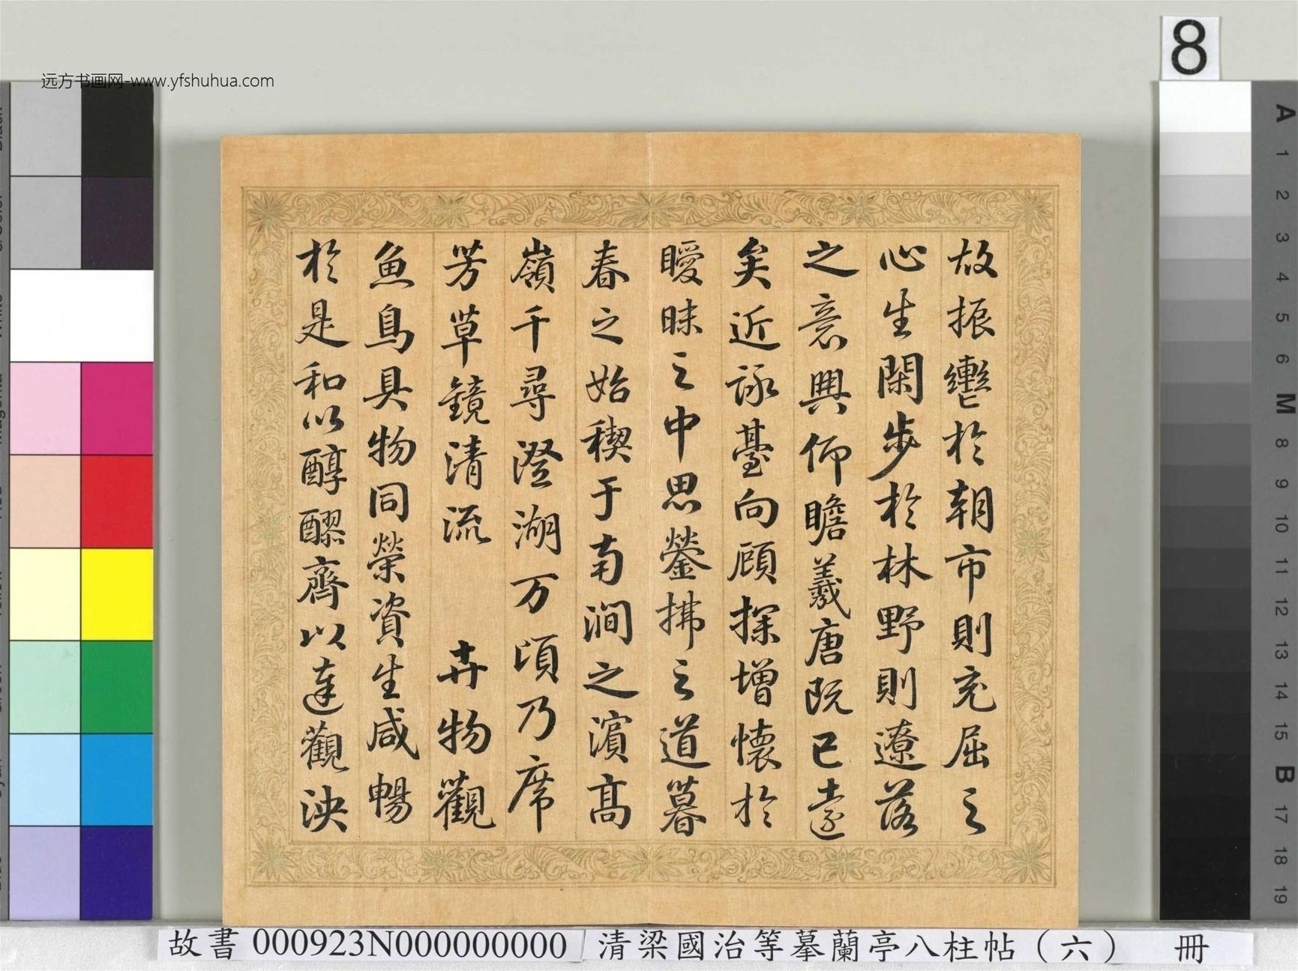 远方书画网-www.yfshuhua.com
8
故振轡於朝市則充屈之
心生閑步於林野則遼落
之意興仰瞻羲唐既已遠
矣近詠臺向顧探增懷於
曖昧之中思鎣拂之道暮
春之始禊于南澗之濱高
嶺千尋澄湖万頃乃席
芳草鏡清流 卉物觀
魚鳥具物同榮資生咸暢
於是和以醇醪齊以達觀泱
A 1 2 3 4 5 6 M 8 9 10 11 12 13 14 15 B 17 18 19
故書 000923N000000000 清梁國治等摹蘭亭八柱帖（六） 冊